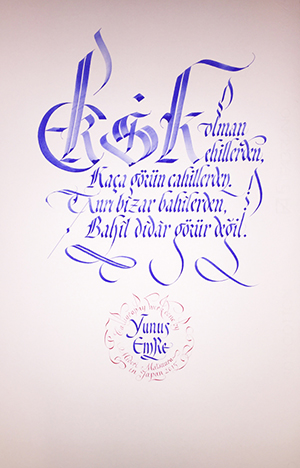 Eksik olman
ehillerden,
Kaça görün cahillerden.
Tanrı bizar bahillerden,
Bahil didar görür değil.
Yunus
EmRe
in Japan